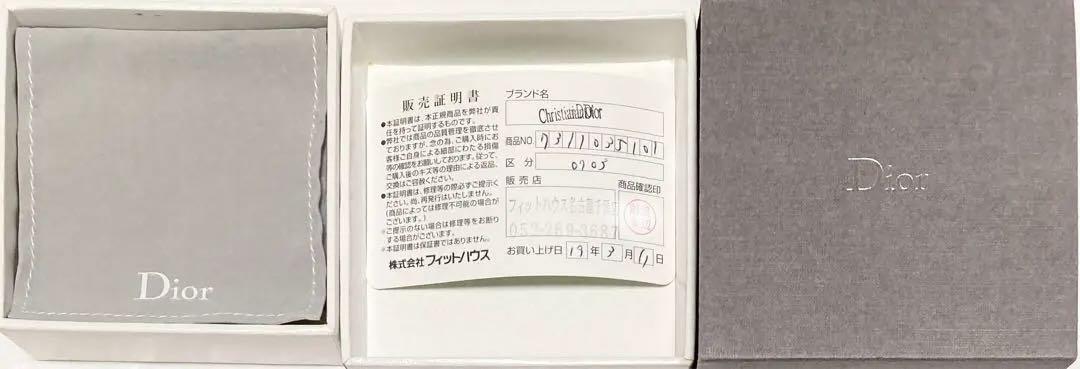 Dior
販売証明書
●本証明書は、本正規商品を弊社が責
任を持って証明するものです。
●弊社では商品の品質管理を徹底させ
ておりますが、念の為、ご購入時にお
客様ご自身による細部にわたる損傷
等の確認をお願いしております。従って、
ご購入後のキズ等の理由による返品、
交換はご容赦ください。
●本証明書は、修理等の際必ずご提示く
ださい。尚、再発行はいたしません。
(商品によっては修理不可能の場合が
ございます。)
※ご提示のない場合は修理等をお断り
する場合がございます。
※本証明書は保証書ではありません。
株式会社フィットハウス
ブランド名
Christian Dior
商品NO. 7311035101
区分 0705
販売店 商品確認印
フィットハウス名古屋
052-269-3687
お買い上げ日 19年3月 日
Dior